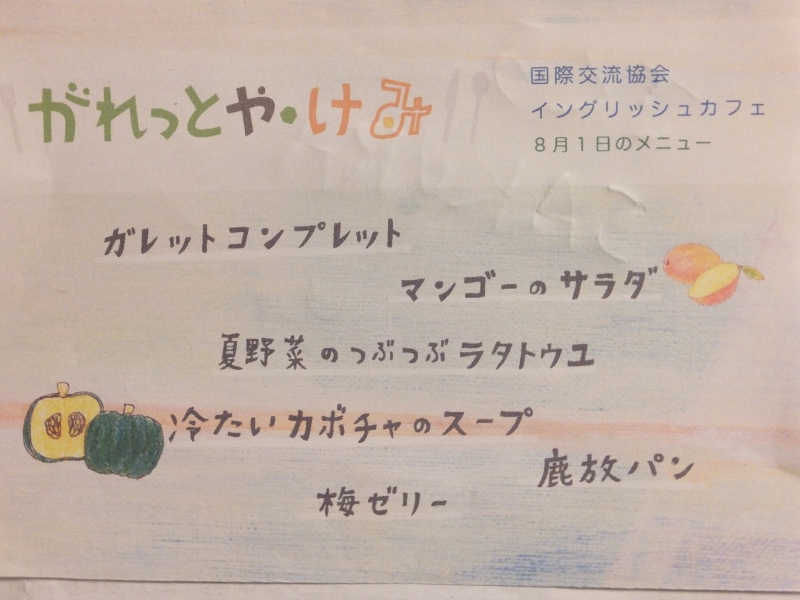 がれっとや・けみ
国際交流協会
イングリッシュカフェ
8月1日のメニュー
ガレットコンプレット
マンゴーのサラダ
夏野菜のつぶつぶラタトウユ
冷たいカボチャのスープ
鹿放パン
梅ゼリー